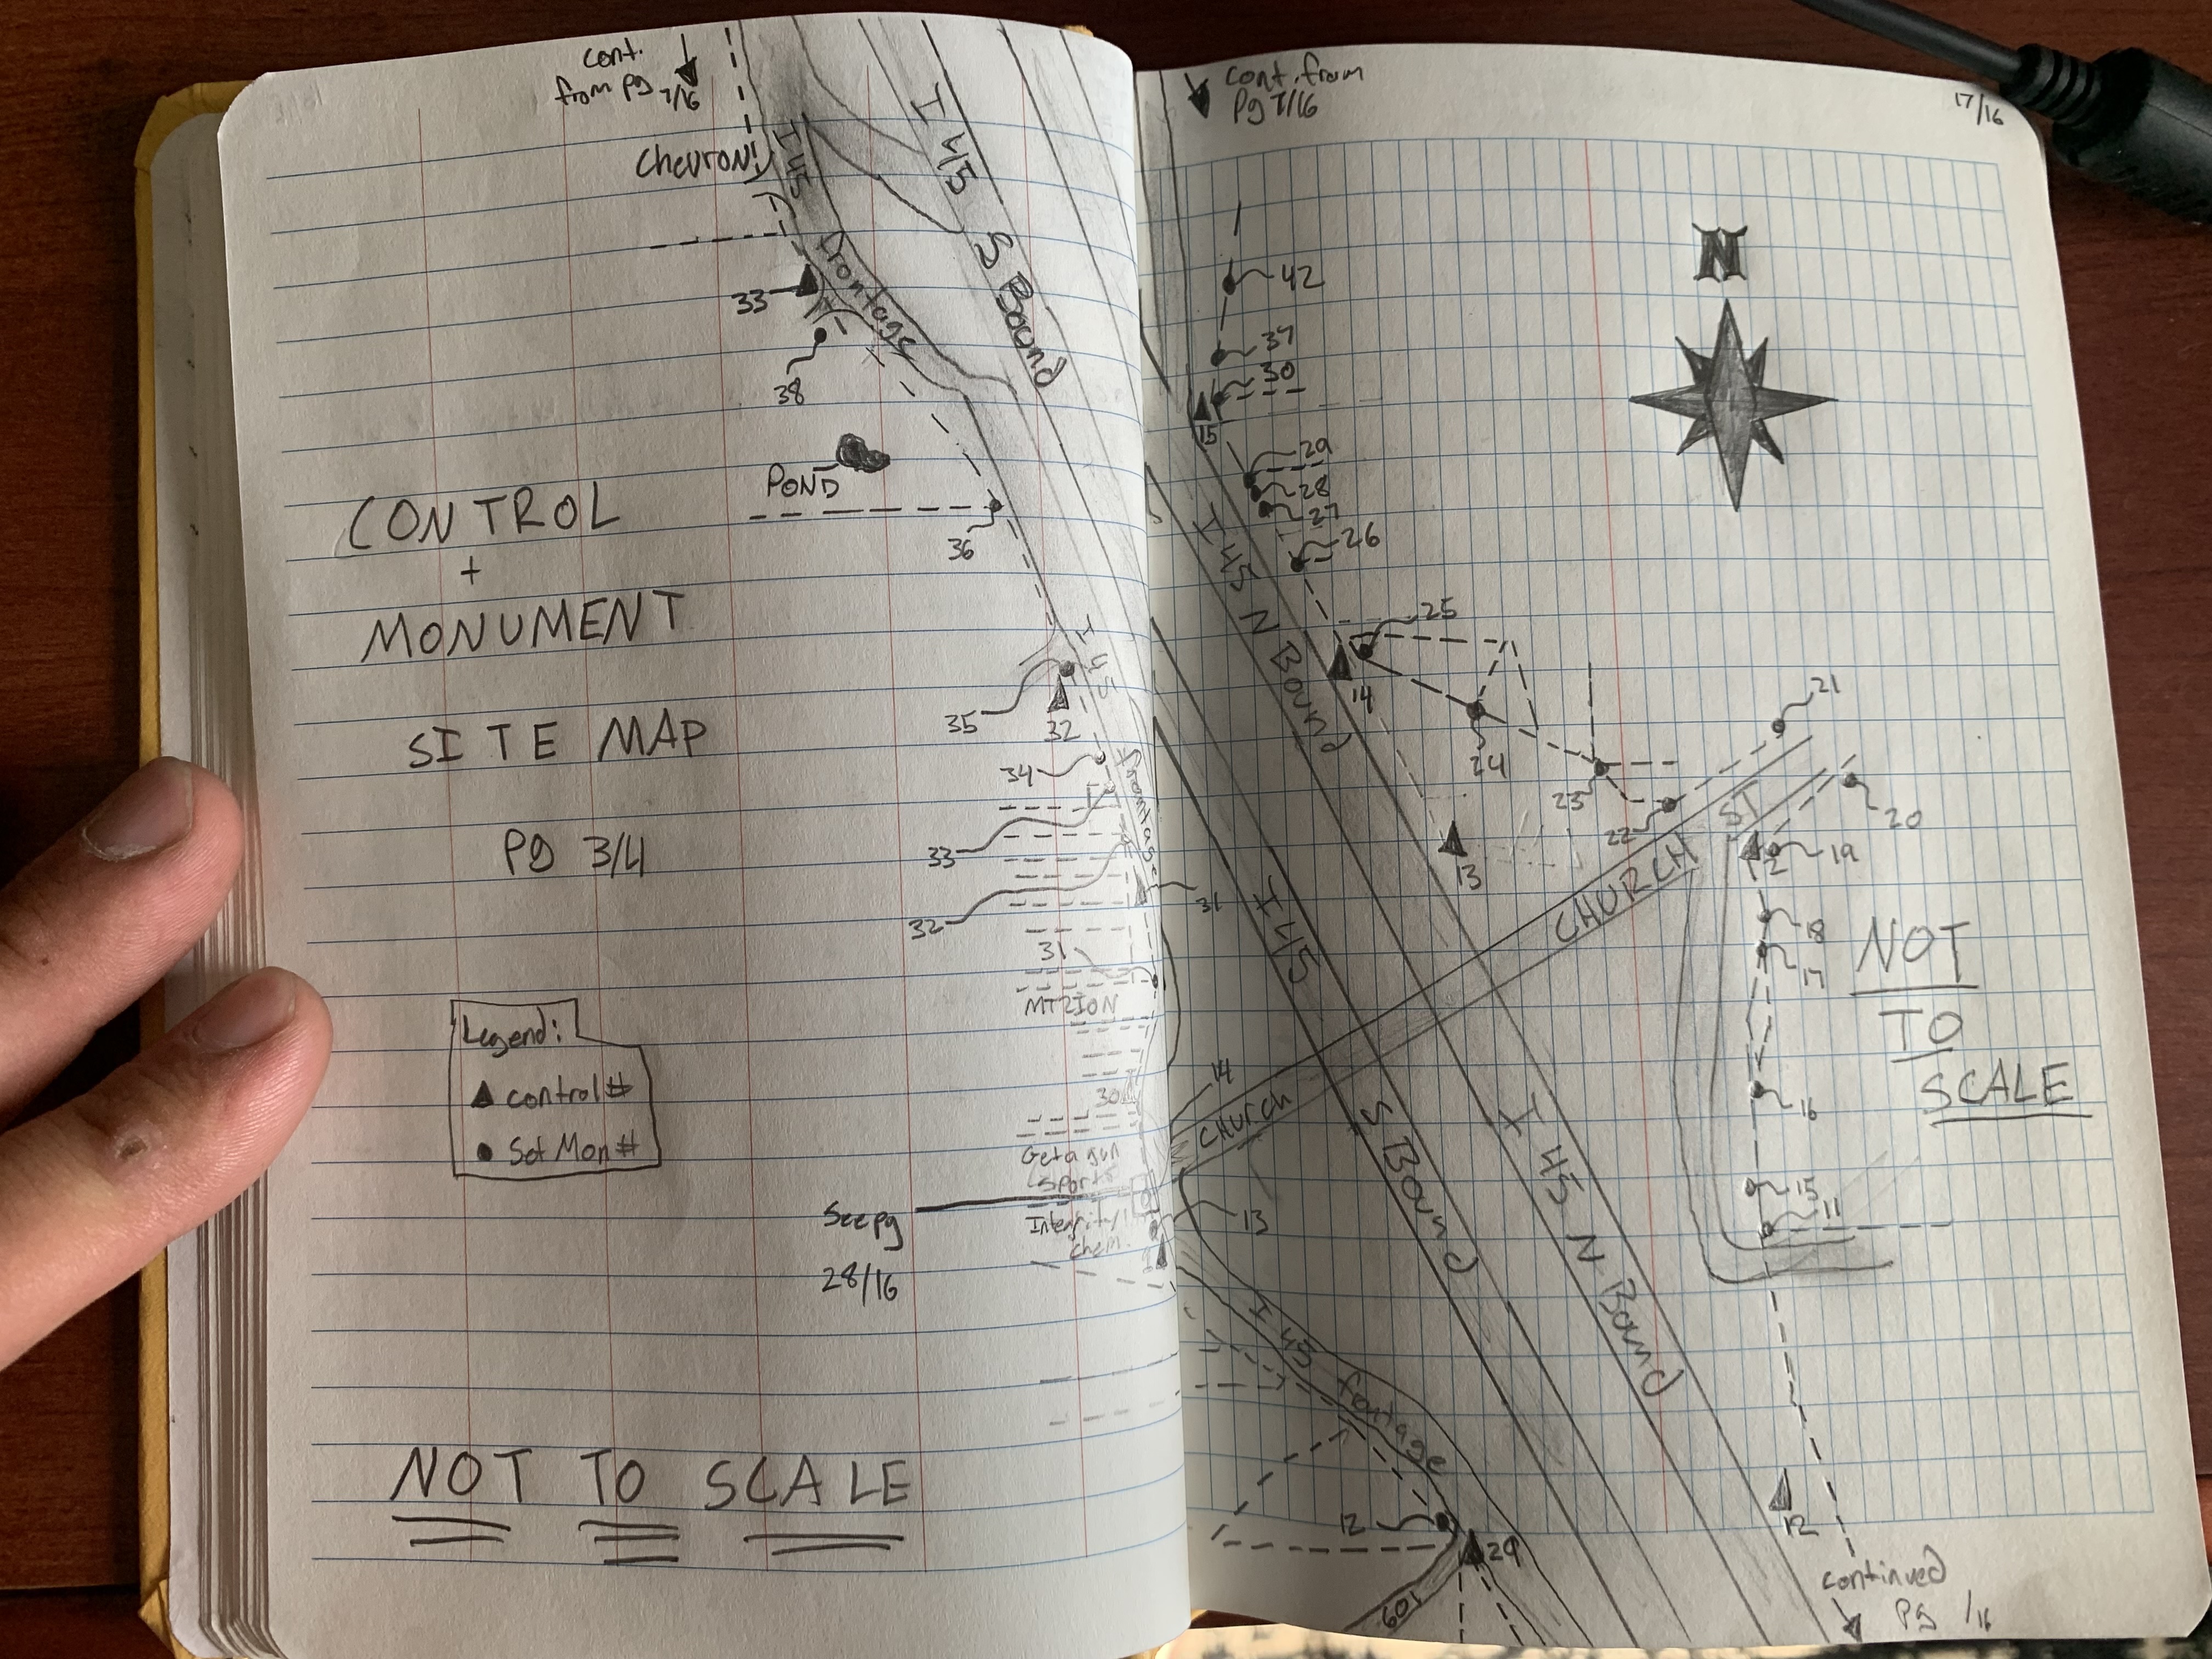 cont.
from pg 7/16
Chevron
I 45
frontage
I 45
S Bound
33
38
POND
36
CONTROL
+
MONUMENT
SITE MAP
PG 3/4
I 45
frontage
35
32
34
33
32
31
31
MT ZION
30
Get a gun
sports
Integrity
chem.
See pg
28/16
Legend:
▲ control #
● Set Mon #
NOT TO SCALE
cont. from
Pg 7/16
17/16
N
42
37
30
15
29
28
27
26
25
14
24
23
22
21
20
19
12
13
18
17
16
15
11
I 45 N Bound
CHURCH ST
NOT
TO
SCALE
I 45
S Bound
I 45 N Bound
14
Church
13
I 45 frontage
12
29
601
12
continued
Pg /16